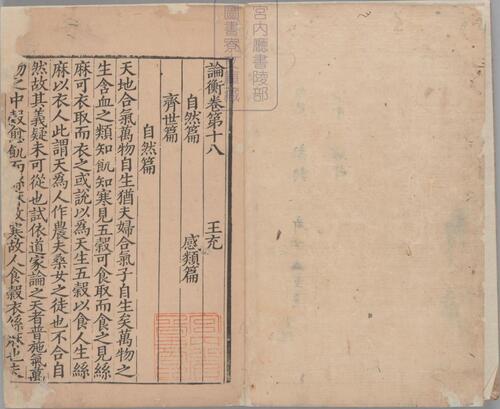 宮内廳書陵部
圖書寮
論衡卷第十八
王充
自然篇
感類篇
齊世篇
自然篇
天地合氣萬物自生猶夫婦合氣子自生矣萬物之
生含血之類知飢知寒見五穀可食取而食之見絲
麻可衣取而衣之或說以為天生五穀以食人生絲
麻以衣人此謂天為人作農夫桑女之徒也不合自
然故其義疑未可從也試依道家論之天者普施氣萬
物之中穀愈飢而絲麻救寒故人食穀衣絲麻也夫